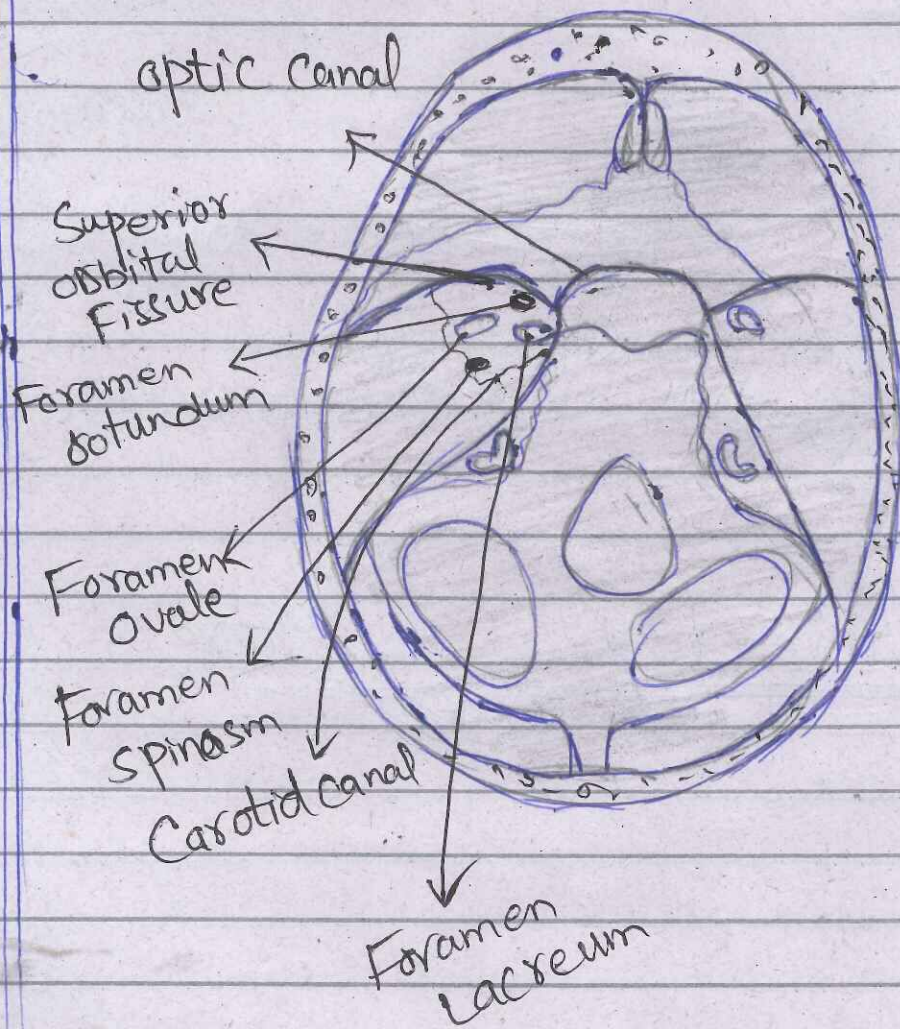 optic canal
Superior
orbital
Fissure
Foramen
rotundum
Foramen
ovale
Foramen
spinosm
Carotid canal
Foramen
Lacreum